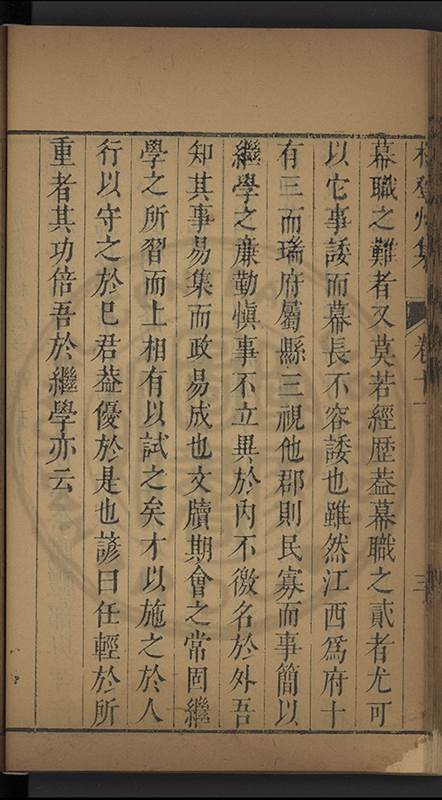 林登州集 卷十一 三
幕職之難者又莫若經歷葢幕職之貳者尤可
以它事諉而幕長不容諉也雖然江西爲府十
有三而瑞府屬縣三視他郡則民寡而事簡以
繼學之廉勤愼事不立異於內不徼名於外吾
知其事易集而政易成也文牘期會之常固繼
學之所習而上相有以試之矣才以施之於人
行以守之於已君葢優於是也諺曰任輕於所
重者其功倍吾於繼學亦云